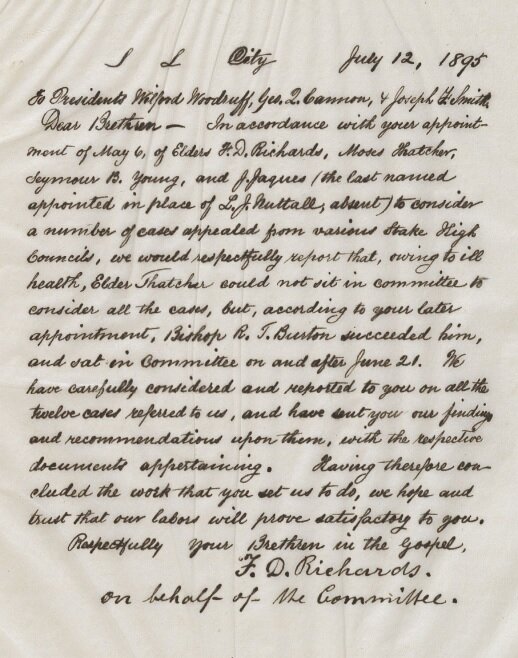 S L City July 12, 1895
To Presidents Wilford Woodruff, Geo. Q. Cannon, & Joseph F. Smith.
Dear Brethren — In accordance with your appoint-
ment of May 6, of Elders F. D. Richards, Moses Thatcher,
Seymour B. Young, and J. Jaques (the last named
appointed in place of L. J. Nuttall, absent) to consider
a number of cases appealed from various Stake High
Councils, we would respectfully report that, owing to ill
health, Elder Thatcher could not sit in committee to
consider all the cases, but, according to your later
appointment, Bishop R. T. Burton succeeded him,
and sat in Committee on and after June 21. We
have carefully considered and reported to you on all the
twelve cases referred to us, and have sent you our findings
and recommendations upon them, with the respective
documents appertaining. Having therefore con-
cluded the work that you set us to do, we hope and
trust that our labors will prove satisfactory to you.
Respectfully Your Brethren in the Gospel,
F. D. Richards.
on behalf of the Committee.